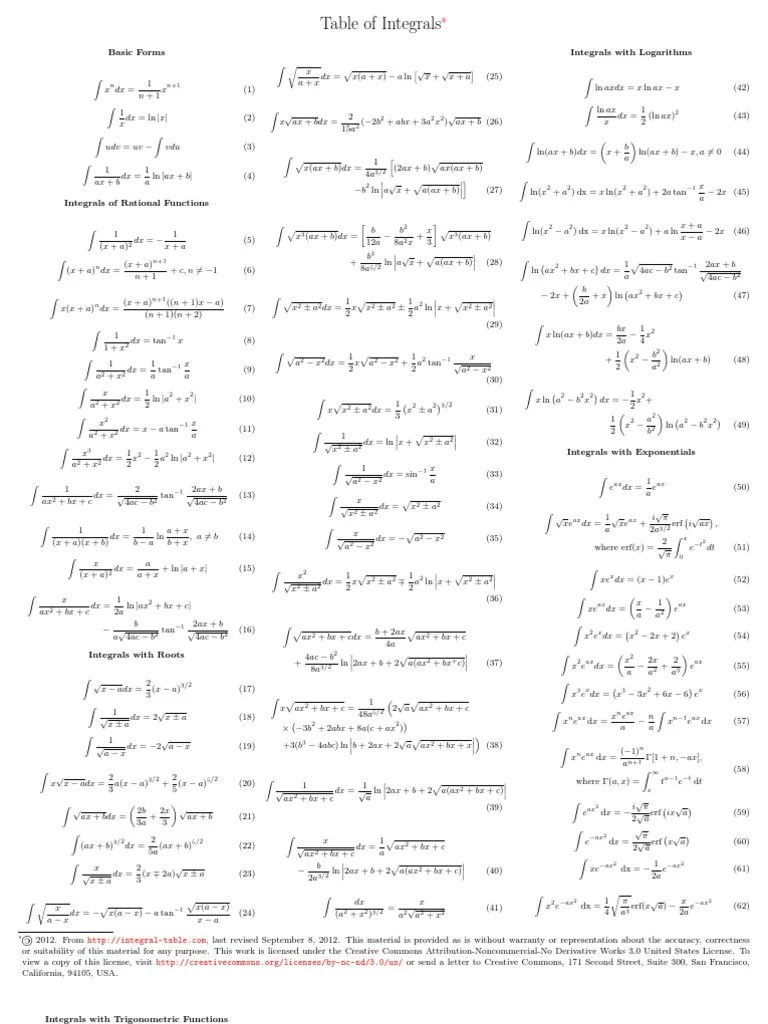 Table of Integrals*
Basic Forms
∫ xⁿdx = 1/(n+1) xⁿ⁺¹ (1)
∫ 1/x dx = ln |x| (2)
∫ udv = uv − ∫ vdu (3)
∫ 1/(ax + b) dx = 1/a ln |ax + b| (4)
Integrals of Rational Functions
∫ 1/(x + a)² dx = − 1/(x + a) (5)
∫ (x + a)ⁿdx = (x + a)ⁿ⁺¹/(n + 1) + c, n ≠ −1 (6)
∫ x(x + a)ⁿdx = (x + a)ⁿ⁺¹((n + 1)x − a)/((n + 1)(n + 2)) (7)
∫ 1/(1 + x²) dx = tan⁻¹ x (8)
∫ 1/(a² + x²) dx = 1/a tan⁻¹ x/a (9)
∫ x/(a² + x²) dx = 1/2 ln |a² + x²| (10)
∫ x²/(a² + x²) dx = x − a tan⁻¹ x/a (11)
∫ x³/(a² + x²) dx = 1/2 x² − 1/2 a² ln |a² + x²| (12)
∫ 1/(ax² + bx + c) dx = 2/√(4ac − b²) tan⁻¹ (2ax + b)/√(4ac − b²) (13)
∫ 1/((x + a)(x + b)) dx = 1/(b − a) ln (a + x)/(b + x), a ≠ b (14)
∫ x/(x + a)² dx = a/(a + x) + ln |a + x| (15)
∫ x/(ax² + bx + c) dx = 1/2a ln |ax² + bx + c|
− b/(a√(4ac − b²)) tan⁻¹ (2ax + b)/√(4ac − b²) (16)
Integrals with Roots
∫ √(x − a)dx = 2/3 (x − a)³ᐟ² (17)
∫ 1/√(x ± a) dx = 2√(x ± a) (18)
∫ 1/√(a − x) dx = −2√(a − x) (19)
∫ x√(x − a)dx = 2/3 a(x − a)³ᐟ² + 2/5 (x − a)⁵ᐟ² (20)
∫ √(ax + b)dx = (2b/3a + 2x/3) √(ax + b) (21)
∫ (ax + b)³ᐟ²dx = 2/5a (ax + b)⁵ᐟ² (22)
∫ x/√(x ± a) dx = 2/3 (x ∓ 2a)√(x ± a) (23)
∫ √(x/(a − x)) dx = −√(x(a − x)) − a tan⁻¹ √(x(a − x))/(x − a) (24)
∫ √(x/(a + x)) dx = √(x(a + x)) − a ln [√x + √(x + a)] (25)
∫ x√(ax + b)dx = 2/15a² (−2b² + abx + 3a²x²)√(ax + b) (26)
∫ √(x(ax + b))dx = 1/4a³ᐟ² [(2ax + b)√(ax(ax + b))
−b² ln |a√x + √(a(ax + b))|] (27)
∫ √(x³(ax + b))dx = [b/12a − b²/8a²x + x/3] √(x³(ax + b))
+ b³/8a⁵ᐟ² ln |a√x + √(a(ax + b))| (28)
∫ √(x² ± a²)dx = 1/2 x√(x² ± a²) ± 1/2 a² ln |x + √(x² ± a²)|
(29)
∫ √(a² − x²)dx = 1/2 x√(a² − x²) + 1/2 a² tan⁻¹ x/√(a² − x²)
(30)
∫ x√(x² ± a²)dx = 1/3 (x² ± a²)³ᐟ² (31)
∫ 1/√(x² ± a²) dx = ln |x + √(x² ± a²)| (32)
∫ 1/√(a² − x²) dx = sin⁻¹ x/a (33)
∫ x/√(x² ± a²) dx = √(x² ± a²) (34)
∫ x/√(a² − x²) dx = −√(a² − x²) (35)
∫ x²/√(x² ± a²) dx = 1/2 x√(x² ± a²) ∓ 1/2 a² ln |x + √(x² ± a²)|
(36)
∫ √(ax² + bx + c)dx = (b + 2ax)/4a √(ax² + bx + c)
+ (4ac − b²)/8a³ᐟ² ln |2ax + b + 2√(a(ax² + bx⁺c)| (37)
∫ x√(ax² + bx + c) = 1/48a⁵ᐟ² (2√a√(ax² + bx + c)
× (−3b² + 2abx + 8a(c + ax²))
+3(b³ − 4abc) ln |b + 2ax + 2√a√(ax² + bx + x)|) (38)
∫ 1/√(ax² + bx + c) dx = 1/√a ln |2ax + b + 2√(a(ax² + bx + c))|
(39)
∫ x/√(ax² + bx + c) dx = 1/a √(ax² + bx + c)
− b/2a³ᐟ² ln |2ax + b + 2√(a(ax² + bx + c))| (40)
∫ dx/(a² + x²)³ᐟ² = x/(a²√(a² + x²)) (41)
Integrals with Logarithms
∫ ln axdx = x ln ax − x (42)
∫ ln ax/x dx = 1/2 (ln ax)² (43)
∫ ln(ax + b)dx = (x + b/a) ln(ax + b) − x, a ≠ 0 (44)
∫ ln(x² + a²) dx = x ln(x² + a²) + 2a tan⁻¹ x/a − 2x (45)
∫ ln(x² − a²) dx = x ln(x² − a²) + a ln (x + a)/(x − a) − 2x (46)
∫ ln (ax² + bx + c) dx = 1/a √(4ac − b²) tan⁻¹ (2ax + b)/√(4ac − b²)
− 2x + (b/2a + x) ln (ax² + bx + c) (47)
∫ x ln(ax + b)dx = bx/2a − 1/4 x²
+ 1/2 (x² − b²/a²) ln(ax + b) (48)
∫ x ln (a² − b²x²) dx = − 1/2 x²+
1/2 (x² − a²/b²) ln (a² − b²x²) (49)
Integrals with Exponentials
∫ eᵃˣdx = 1/a eᵃˣ (50)
∫ √xeᵃˣdx = 1/a √xeᵃˣ + i√π/2a³ᐟ² erf (i√(ax)),
where erf(x) = 2/√π ∫₀ˣ e^(−t²) dt (51)
∫ xeˣdx = (x − 1)eˣ (52)
∫ xeᵃˣdx = (x/a − 1/a²) eᵃˣ (53)
∫ x²eˣdx = (x² − 2x + 2) eˣ (54)
∫ x²eᵃˣdx = (x²/a − 2x/a² + 2/a³) eᵃˣ (55)
∫ x³eˣdx = (x³ − 3x² + 6x − 6) eˣ (56)
∫ xⁿeᵃˣ dx = xⁿeᵃˣ/a − n/a ∫ xⁿ⁻¹eᵃˣdx (57)
∫ xⁿeᵃˣ dx = (−1)ⁿ/aⁿ⁺¹ Γ[1 + n, −ax],
where Γ(a, x) = ∫ₓ^∞ tᵃ⁻¹e⁻ᵗ dt (58)
∫ e^(ax²) dx = − i√π/2√a erf (ix√a) (59)
∫ e^(−ax²) dx = √π/2√a erf (x√a) (60)
∫ xe^(−ax²) dx = − 1/2a e^(−ax²) (61)
∫ x²e^(−ax²) dx = 1/4 √(π/a³) erf(x√a) − x/2a e^(−ax²) (62)
*© 2012. From http://integral-table.com, last revised September 8, 2012. This material is provided as is without warranty or representation about the accuracy, correctness
or suitability of this material for any purpose. This work is licensed under the Creative Commons Attribution-Noncommercial-No Derivative Works 3.0 United States License. To
view a copy of this license, visit http://creativecommons.org/licenses/by-nc-nd/3.0/us/ or send a letter to Creative Commons, 171 Second Street, Suite 300, San Francisco,
California, 94105, USA.
Integrals with Trigonometric Functions